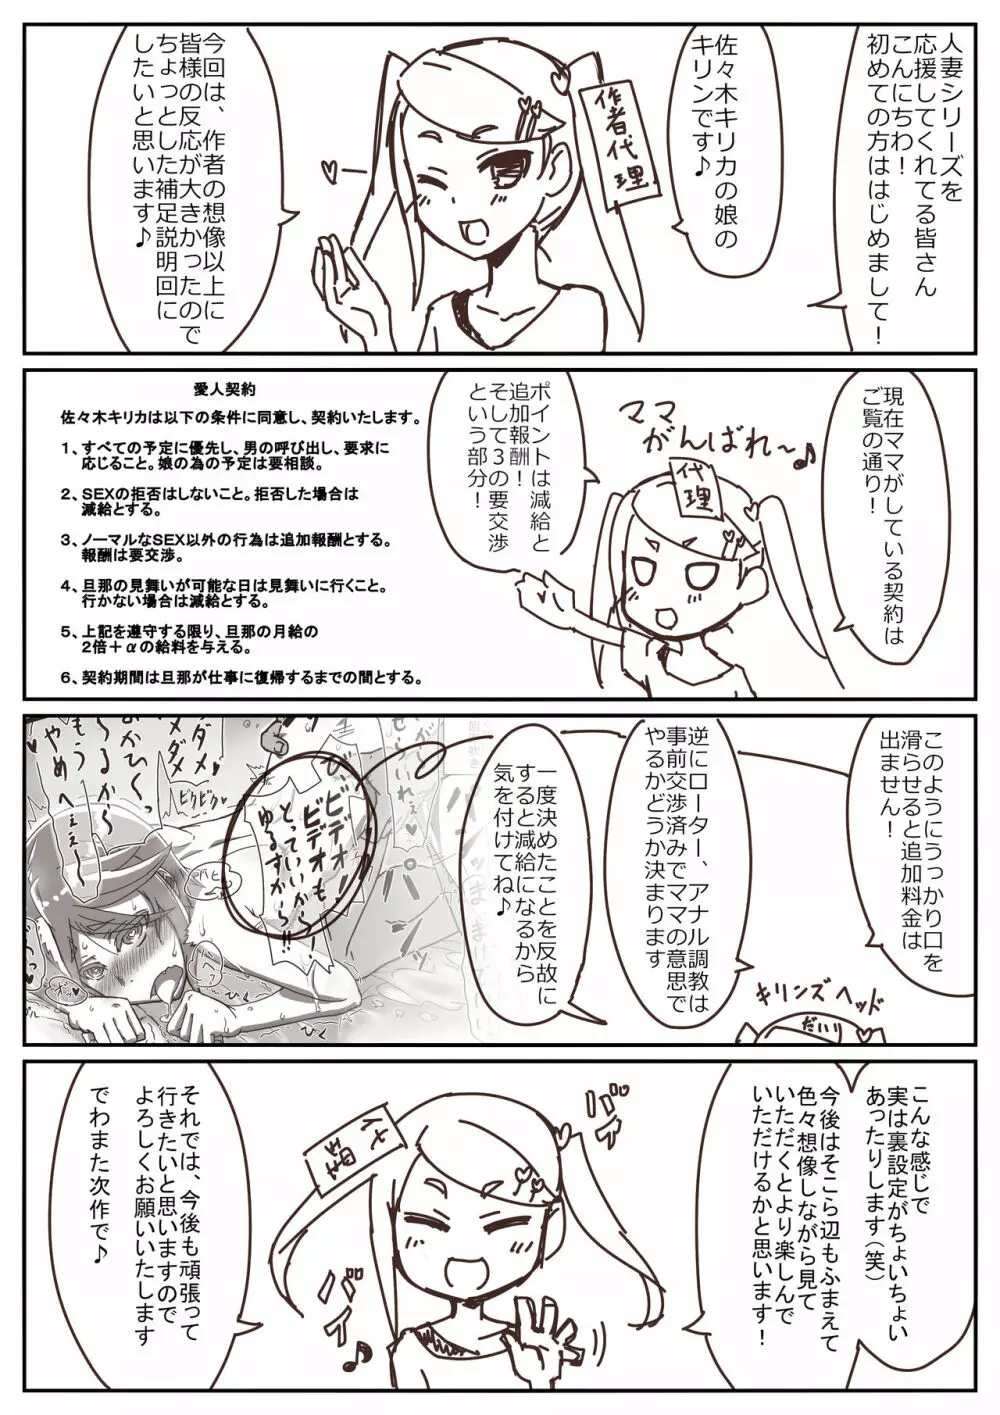 人妻シリーズを
応援してくれてる皆さん
こんにちわ！
初めての方ははじめまして！
作者代理
佐々木キリカの娘の
キリンです♪
今回は、作者の想像以上に
皆様の反応が大きかったので
ちょっとした補足説明回に
したいと思います♪
現在ママがしている契約は
ご覧の通り！
ママ
がんばれ～♪
代理
ポイントは減給と
追加報酬！
そして３の要交渉
という部分！
愛人契約
佐々木キリカは以下の条件に同意し、契約いたします。
１、すべての予定に優先し、男の呼び出し、要求に
応じること。娘の為の予定は要相談。
２、ＳＥＸの拒否はしないこと。拒否した場合は
減給とする。
３、ノーマルなＳＥＸ以外の行為は追加報酬とする。
報酬は要交渉。
４、旦那の見舞いが可能な日は見舞いに行くこと。
行かない場合は減給とする。
５、上記を遵守する限り、旦那の月給の
２倍＋αの給料を与える。
６、契約期間は旦那が仕事に復帰するまでの間とする。
このようにうっかり口を
滑らせると追加料金は
出ません！
逆にローター、アナル調教は
事前交渉済みでママの意思で
やるかどうか決まります
一度決めたことを反故に
すると減給になるから
気を付けてね♪
キリンズヘッド
だいり
ビデオ！
ビデオも
とっていいから
ゆるすから～!!
ダメ
ダメ
ビクビク
もう
やめ
へぇぇ～
パ
パ
ひく
こんな感じで
実は裏設定がちょいちょい
あったりします（笑）
今後はそこら辺もふまえて
色々想像しながら見て
いただくとより楽しんで
いただけるかと思います！
バ～イ♪
それでは、今後も頑張って
行きたいと思いますので
よろしくお願いいたします
でわまた次作で♪